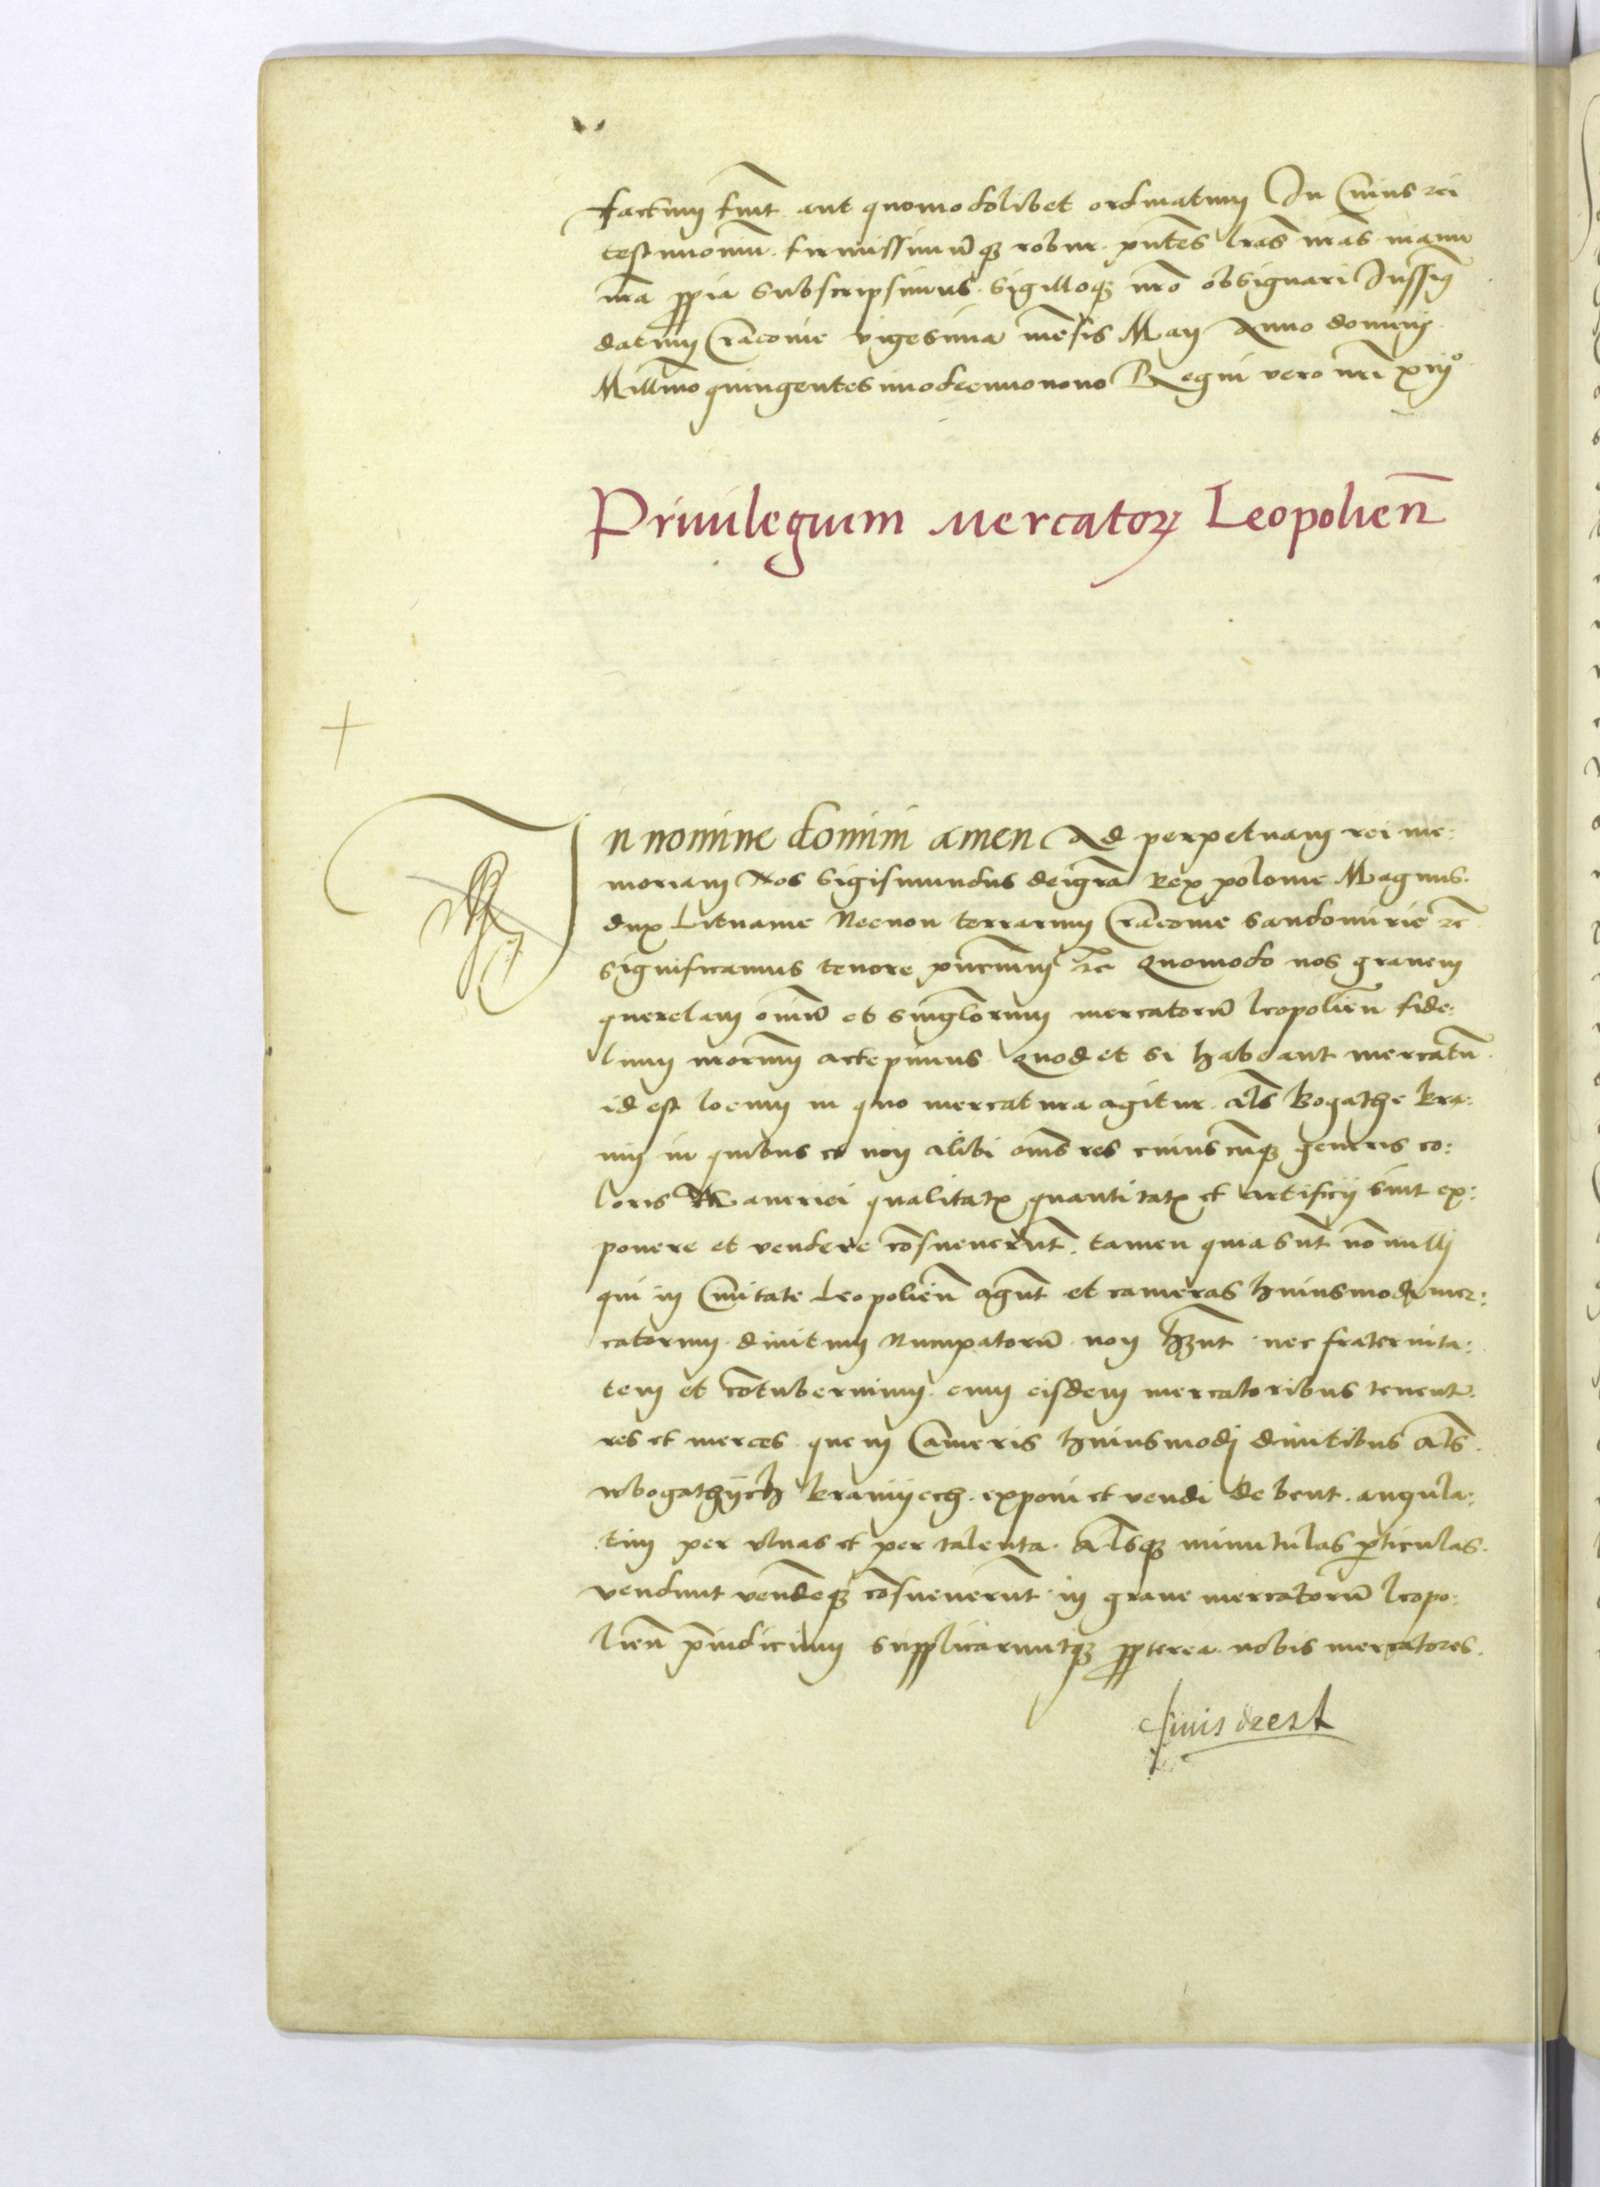 factum fuit aut quomodolibet ordinatum In Cuius rei
testimoniu firmissimuq robur pntes lras nras manu
nra ppia subscripsimus sigilloq nro obsignari Jussim
datum Cracouie vigesima mesis May Anno domini
Millmo quingentesimodecimonono Regni vero nri xiijo
Priuilegium Mercatorꝝ Leopolien
In nomine domini amen Ad perpetuam rei me:
moriam Nos Sigismundus dei gra Rex polonie Magnus
dux Lituanie Necnon terrarum Cracouie Sandomirie zc
significamus tenore pncium zc Quomodo nos grauem
querelam omiu et singlorum mercatoru leopolien fide:
lium nrorum accepimus quod et si habeant mercatu
id est locum in quo mercatura agitur als Bogathe kra:
mij in quibus et non alibi oms res cuiuscuq generis co:
loris Maneriei qualitatꝭ quantitatꝭ et artificij sint ex:
ponere et vendere cosueuerunt tamen quia sunt nonulli
qui in Ciuitate Leopolien agunt et cameras huiusmodi mer:
catorum diuitum Nuncupatoru non hnt nec fraternita:
tem et cotubernium cum eisdem mercatoribus tenent
res et merces que in Cameris huiusmodi diuitibus als
wbogathijch kramijech exponi et vendi debent angula:
tim per vlnas et per talenta alsq minutulas pticulas
vendunt vendeq cosueuerunt in graue mercatoru leopo:
lien piudicium supplicaruntq ppterea nobis mercatores